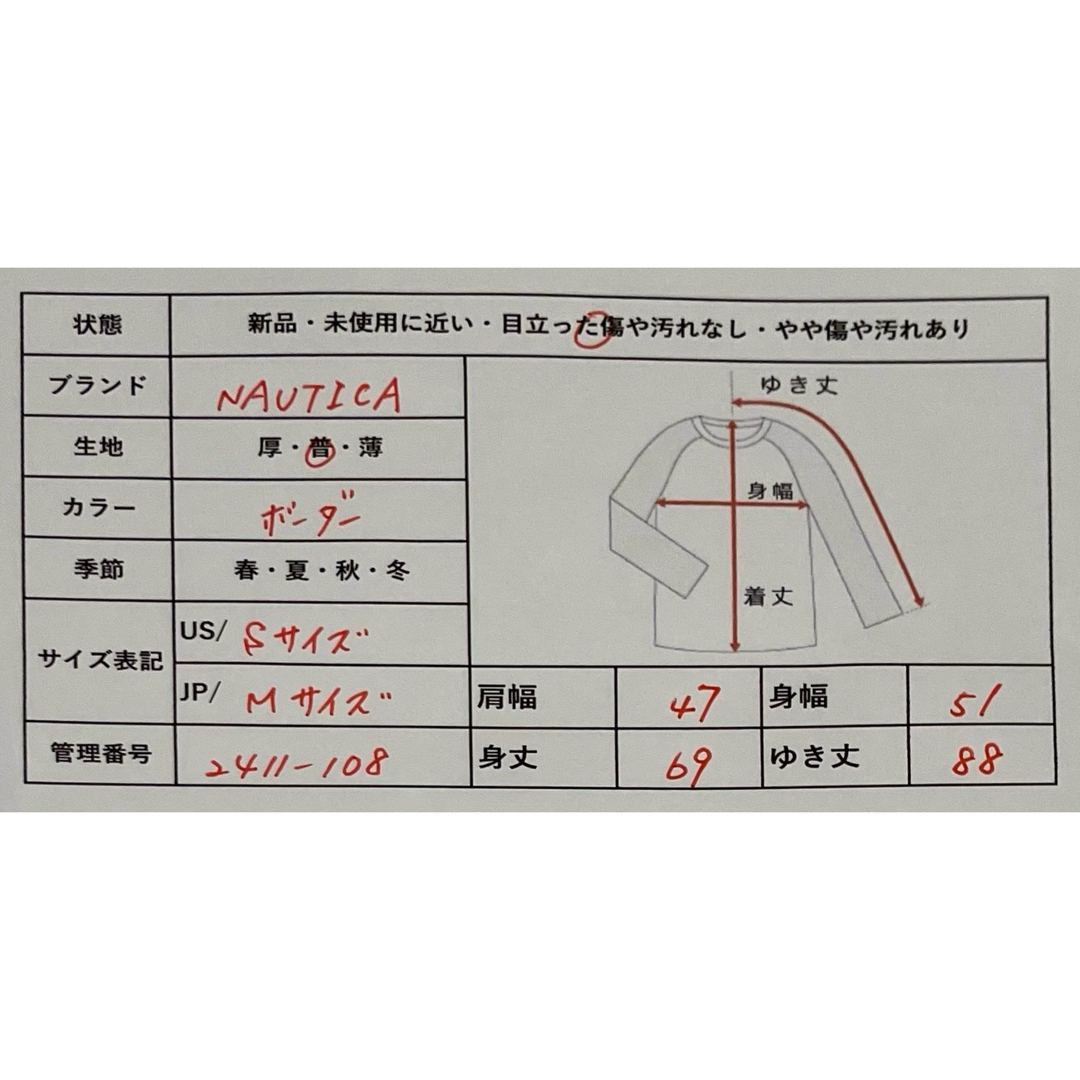 状態 新品・未使用に近い・目立った傷や汚れなし・やや傷や汚れあり
ブランド NAUTICA
ゆき丈
生地 厚・普・薄
カラー ボーダー
身幅
季節 春・夏・秋・冬
着丈
サイズ表記 US/ Sサイズ
JP/ Mサイズ 肩幅 47 身幅 51
管理番号 2411-108 身丈 69 ゆき丈 88